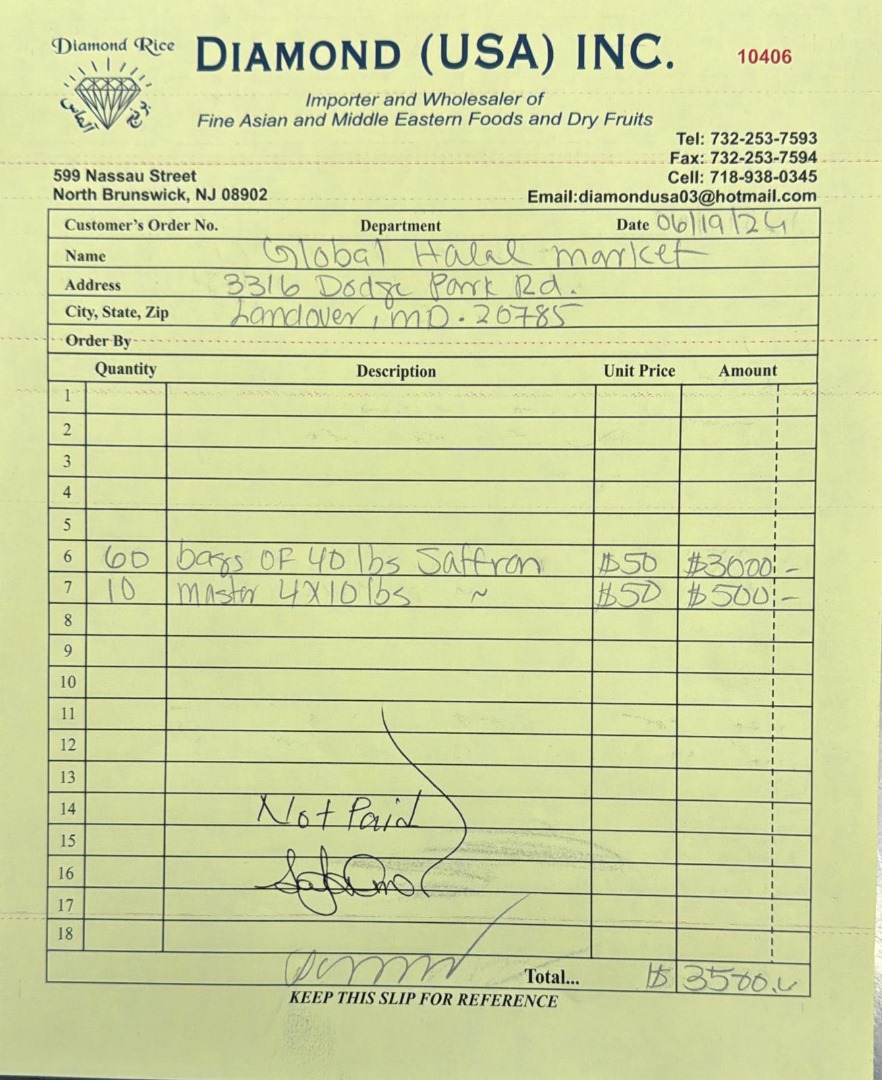 Diamond Rice
DIAMOND (USA) INC.
10406
Importer and Wholesaler of
Fine Asian and Middle Eastern Foods and Dry Fruits
Tel: 732-253-7593
Fax: 732-253-7594
599 Nassau Street
Cell: 718-938-0345
North Brunswick, NJ 08902
Email:diamondusa03@hotmail.com
Customer's Order No. Department Date 06/19/24
Name Global Halal market
Address 3316 Dodge Park Rd.
City, State, Zip Landover, MD. 20785
Order By
Quantity Description Unit Price Amount
1
2
3
4
5
6 60 bags OF 40 lbs Saffron $50 $3000 -
7 10 master 4X10 lbs ~ $50 $500 -
8
9
10
11
12
13
14 Not Paid
15
16
17
18
Total... $ 3500.
KEEP THIS SLIP FOR REFERENCE